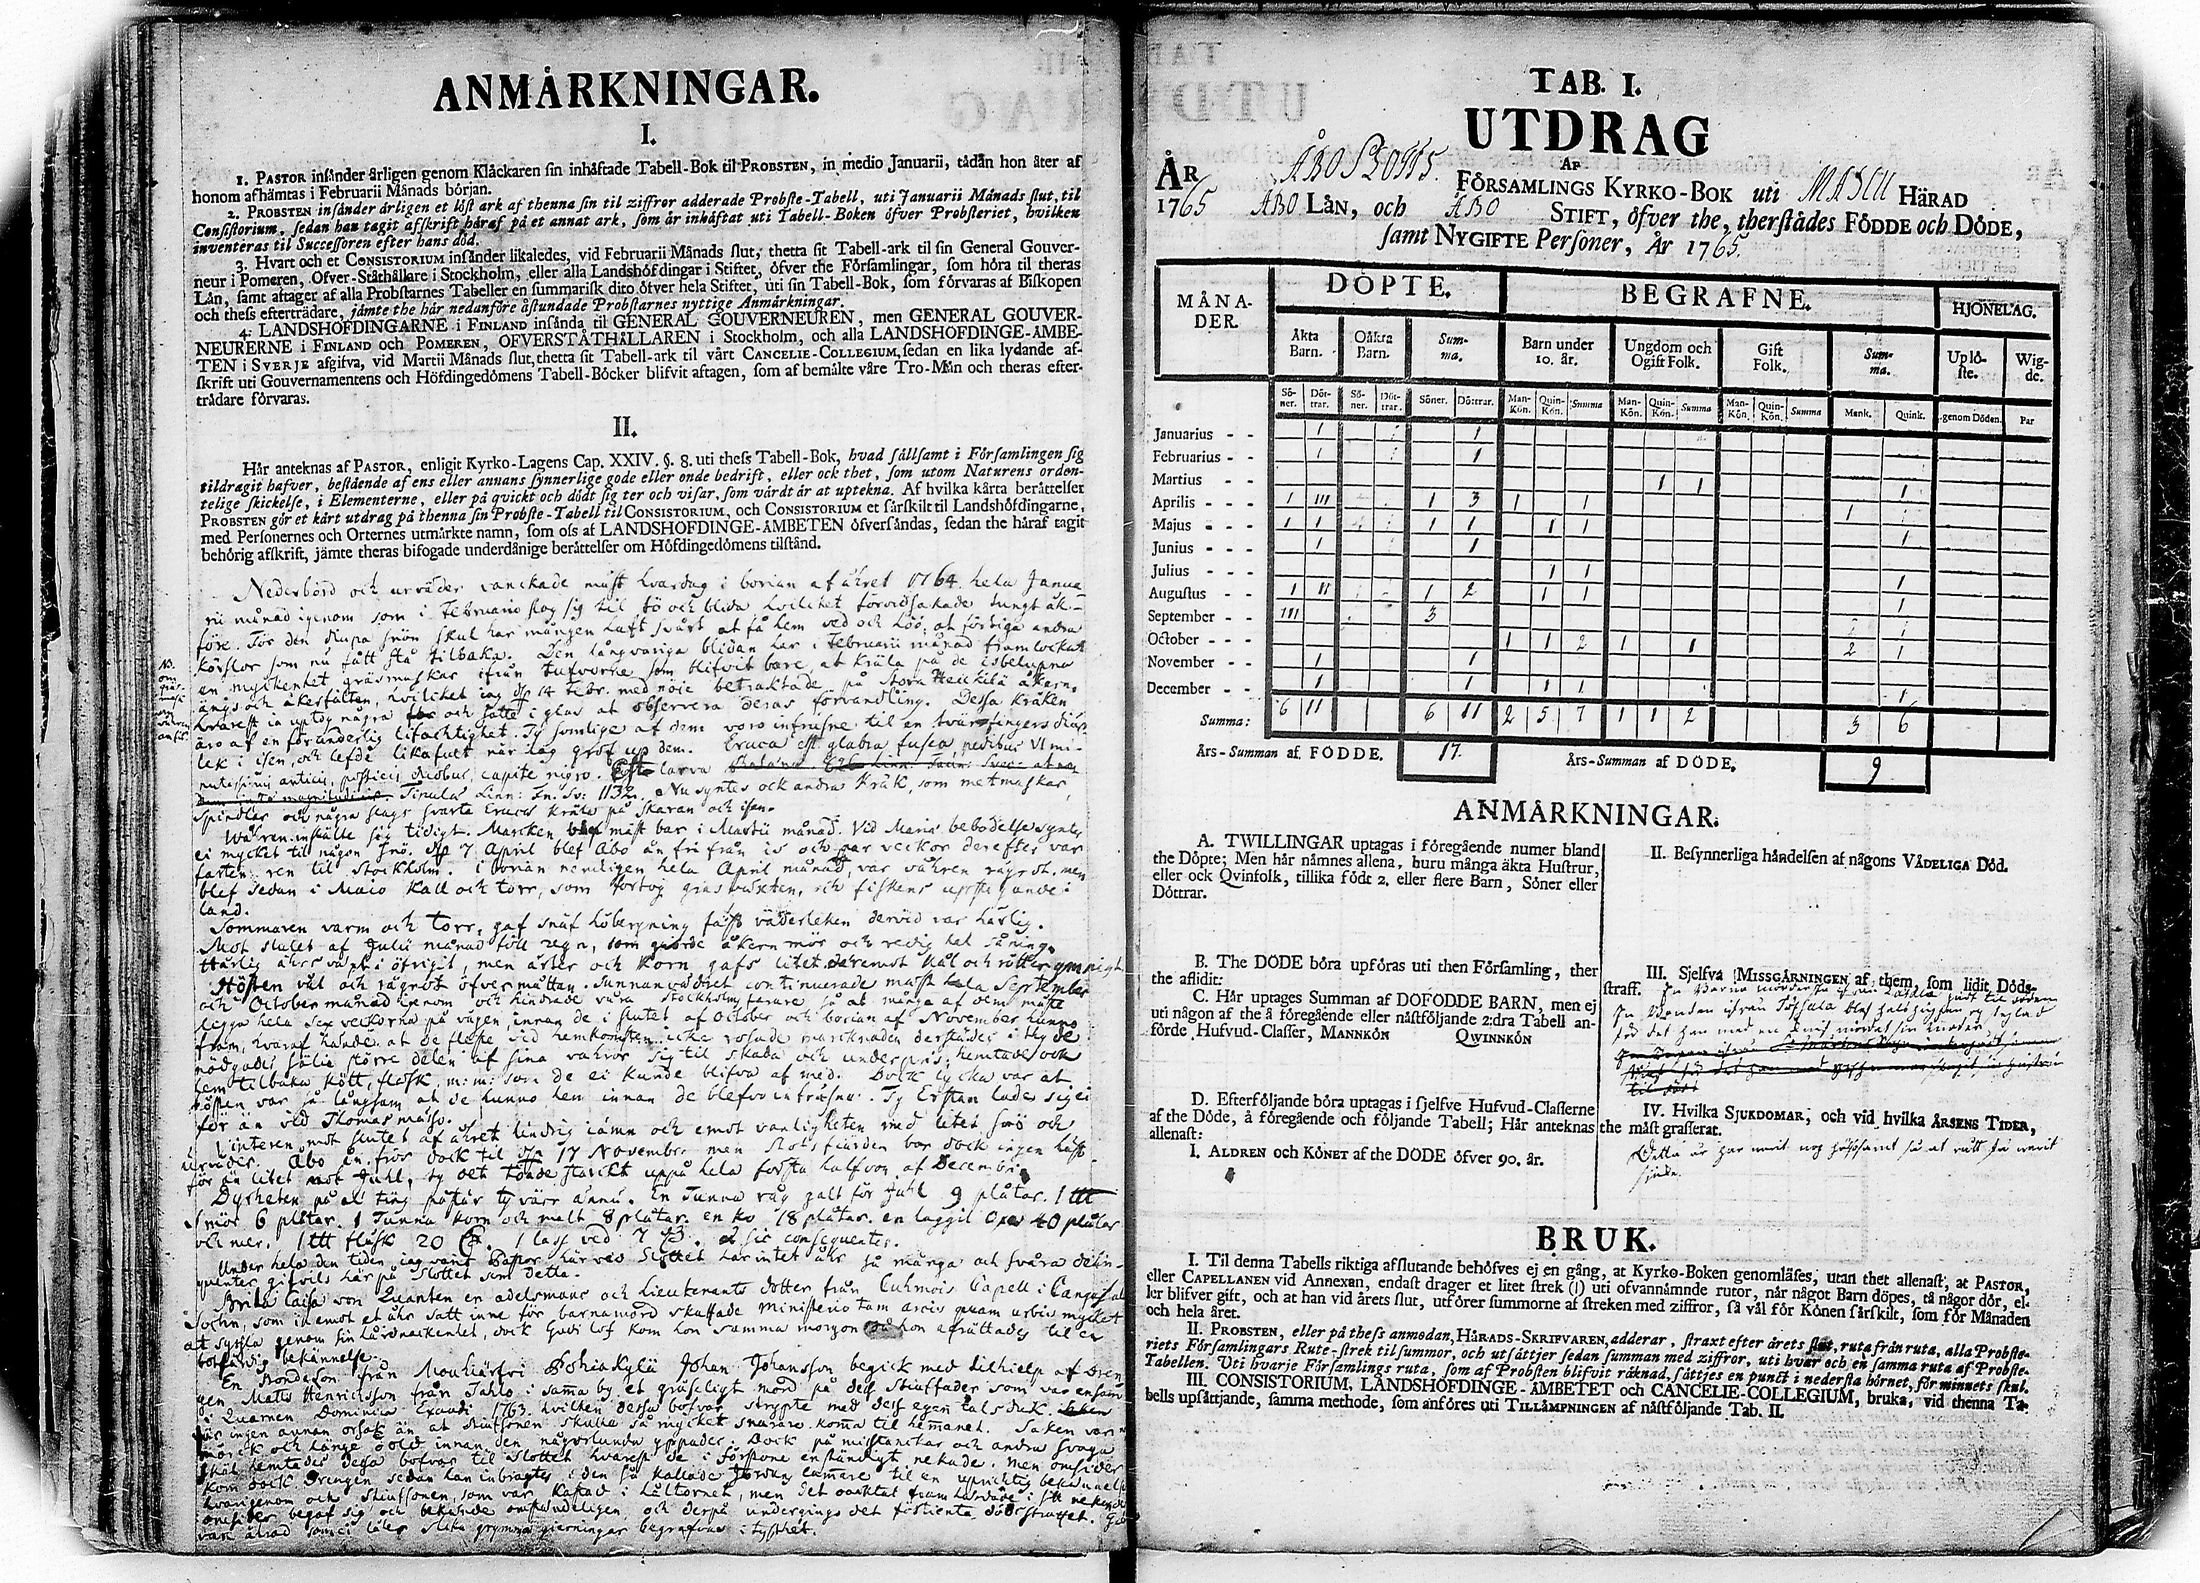 ANMÅRKNINGAR.
I.
1. PASTOR insånder årligen genom Klåckaren sin inhåftade Tabell-Bok til PROBSTEN, in medio Januarii, tådån hon åter af
honom afhåmtas i Februarii Månads början.
2. PROBSTEN insånder årligen et löst ark af thenna sin til ziffror adderade Probste-Tabell, uti Januarii Månads slut, til
Consistorium, sedan han tagit afskrift håraf på et annat ark, som år inhåftat uti Tabell-Boken öfver Probsteriet, hvilken
inventeras til Successoren efter hans död.
3. Hvart och et CONSISTORIUM insånder likaledes, vid Februarii Månads slut, thetta sit Tabell-ark til sin General Gouver-
neur i Pomeren, Ofver-Ståthållare i Stockholm, eller alla Landshöfdingar i Stiftet, öfver the Församlingar, som höra til theras
Lån, samt aftager af alla Probstarnes Tabeller en summarisk dito öfver hela Stiftet, uti sin Tabell-Bok, som förvaras af Biskopen
och thess efterträdare, jåmte the hår nedanföre åstundade Probstarnes nyttige Anmårkningar.
4. LANDSHÖFDINGARNE i FINLAND insånda til GENERAL GOUVERNEUREN, men GENERAL GOUVER-
NEURERNE i FINLAND och POMEREN, OFVERSTÅTHÅLLAREN i Stockholm, och alla LANDSHÖFDINGE-ÅMBE-
TEN i SVERJE afgifva, vid Martii Månads slut, thetta sit Tabell-ark til vårt CANCELIE-COLLEGIUM, sedan en lika lydande af-
skrift uti Gouvernamentens och Höfdingedömens Tabell-Böcker blifvit aftagen, som af bemålte våre Tro-Mån och theras efter-
trådare förvaras.
II.
Hår anteknas af PASTOR, enligit Kyrko-Lagens Cap. XXIV. §. 8. uti thess Tabell-Bok, hvad sållsamt i Församlingen sig
tildragit hafver, bestående af ens eller annans synnerlige gode eller onde bedrift, eller ock thet, som utom Naturens orden-
telige skickelse, i Elementerne, eller på qvickt och dödt sig ter och visar, som vårdt år at uptekna. Af hvilka kårta beråttelser
PROBSTEN gör et kårt utdrag på thenna sin Probste-Tabell til CONSISTORIUM, och CONSISTORIUM et sårskilt til Landshöfdingarne,
med Personernes och Orternes utmårkte namn, som oss af LANDSHÖFDINGE-ÅMBETEN öfversåndas, sedan the håraf tagit
behörig afskrift, jåmte theras bifogade underdånige beråttelser om Höfdingedömens tilstånd.
Nederbörd och urväder vanckade mäst hvardag i börian af åhret 1764 hela Janua
rii månad igenom som i Februario slog sig til tö och blida hvilcket förorsakade tungt åk-
före. För den diupa snön skul har mången haft svårt at få hem ved och höö, at förtiga andra
körslor som nu fått stå tilbaka. Den långvariga blidan har i Februarii månad framlockat
en myckenhet gräsmaskar ifrån tufvorne som blifvit bare, at kräla på de isbelupna
ängs och åkerfälten, hvilcket iag d. 14 Febr. med nöie betraktade på Stora Heickilä åkern,
hvarest ia uptog några och satte i glas at observera deras förvandling. Dessa kräken
äro af en förunderlig lifachtighet. Ty somlige af dem voro infrusne til en tvär fingers diup
lek i isen, och lefde likafult när iag grof up dem. Eruca est glabra fusca pedibus VI mi-
nutissimis anticis, posticis duobus, capite nigro. larva
Tipula Linn: Fn. Sv: 1132. Nu syntes ock andra kräk, som metmaskar,
Spindlar och några slags svarta Erucæ kräla på skaran och isen.
Wåhren instälte sig tidigt. Marcken mäst bar i Martii månad. Vid Mariæ bebodelse syntes
ei mycket til någon snö. d. 7 April blef Åbo ån fri från is och par veckor derefter var
farten ren til Stockholm. I börian nemligen hela April månad, var våhren rägnot, men
blef sedan i Maio kall och torr, som förtog gräsväxten, och fiskens upstigande i
land.
Sommaren varm och torr, gaf snäf höbergning fast väderleken dervid var härlig.
Mot slutet af Julii månad föll regn, som giorde åkern mör och redig til såning.
Härlig åhrsväxt i öfrigit, men ärter och korn gafs litet, däremot kål och rötter ymnigt
Hösten våt och rägnot öfver måttan. Sunnanvädret continuerade mäst hela September
och October månad igenom och hindrade våra Stockholmsfarare så at många af dem måste
ligga hela sex veckorna på vägen, innan de i slutet af October och börian af November hunno
fram, hvaraf hände at de fläste vid hemkomsten icke
nödgades sälia större delen af sina varor sig til skada och underpris, hemtade ock
hem tilbaka kött, fläsk, m:m: som de ei kunde blifva af med. Dock lycka var at
hösten var så långsam at de hunno hem innan de blefvo infrusne. Ty Erstan lades sig ei
för än vid Thomasmässo.
Winteren mot slutet af åhret lindrig iämn och emot vanligheten med litet snö och
urväder. Åbo ån frös dock til d. 17 November men Slottsfiärden bar dock ingen häst
för än litet mot Juhl, ty det töade starckt uppå hela första halfvon af Decembris.
Dyrheten på all ting påstår ty värr ännu. En Tunna råg galt för Juhl 9 plåtar. 1 ttt
Smör 6 plåtar. 1 Tunna korn och malt 8 plåtar. en ko 18 plåtar. en laggil Oxe 40 plåtar
och mer. 1 ttt fläsk 20 1 lass ved 7 et sic consequentes.
Under hela den tiden iag varit Pastor här ved Slottet har intet åhr så många och svåra delin-
quenter gifvits här på slottet som detta.
Brita Caisa von Quanten en adelsmans och Lieutenants dotter från Cuhmois Capell i
Sochn, som i emot et åhr satt inne för barnamord skaffade ministerio tam arcis quam urbis mycket
at syssla genom sin hårdnackenhet, dock Gudi lof kom hon samma morgon då hon afrättades til en
botfärdig bekännelse.
En bondason från Mouhiärfvi Pohiakylä Johan Johansson begick med tilhielp af dren
gen Matts Henricksson från Tahlo i samma by et gräseligt mord på dess stiuffader som var ensam
i Quarnen Dominica Exaudi 1763, hvilken dessa bofvar strypte med dess egen halsduk.
för ingen annan orsak än at stiufsonen skulle så mycket snarare komma til hemanet. Saken var
mörck och länge dold innan den någorlunda yppades. Dock på misstanckar och andra svaga
skäl hemtades dessa bofvar til Slottet hvarest de i förstone enständigt nekade. Men omsider
kom dock Drengen sedan han inbragtes i den så kallade Jungfru camare til en uprichtig bekännelse
hvarigenom och stiufsonen, som var kastad i håltornet, men det oachtat framhärdade i sitt nekande
omsider begaf sig och bekände omständeligen och derpå undergingo det förtienta dödsstraffet. Gud
vare ärad som ei låter slika grymma gierningar begrafvas i tysthet.
NB.
om
gräs-
mas-
kar
TAB. I.
UTDRAG
AF
ÅR ÅBO SLOTTS. FÖRSAMLINGS KYRKO-BOK uti MASCU HÄRAD
1765 ÅBO LÅN, och ÅBO STIFT, öfver the, therstådes FÖDDE och DÖDE,
samt NYGIFTE Personer, År 1765.
MÅNA-DER. DÖPTE. BEGRAFNE. HJONELAG.
Åkta Barn. Oåkta Barn. Sum-ma. Barn under 10. år. Ungdom och Ogift Folk. Gift Folk. Sum-ma. Uplö-ste. Wig-de.
Sö-ner. Döt-trar. Sö-ner. Döt-trar. Söner. Döttrar. Man-Kön. Quin-Kön. Summa Man-Kön. Quin-Kön. Summa Man-Kön. Quin-Kön. Summa Mank. Quink. genom Döden. Par
Januarius - - 1 1
Februarius - - 1 1
Martius - - 1 1
Aprilis - - - 1 III 1 3 1 1 1
Majus - - - 1 1 1 1 1 1 1
Junius - - - 1 1 1
Julius - - - 1 1
Augustus - - 1 II 1 2 1 1 1
September - - III 3 1
October - - - 1 1 2 1 1 2 1
November - - 1 1
December - - 1 1 1 1 1
Summa: 6 11 6 11 2 5 7 1 1 2 3 6
Års-Summan af FÖDDE. 17. Års-Summan af DÖDE, 9
ANMÅRKNINGAR.
A. TWILLINGAR uptagas i föregående numer bland
the Döpte; Men hår nåmnes allena, huru många äkta Hustrur,
eller ock Qvinfolk, tillika födt 2, eller flere Barn, Söner eller
Döttrar.
B. The DÖDE böra upföras uti then Församling, ther
the aflidit:
C. Hår uptages Summan af DÖFÖDDE BARN, men ej
uti någon af the å föregående eller nåstföljande 2:dra Tabell an-
förde Hufvud-Classer, MANNKÖN QWINNKÖN
D. Efterföljande böra uptagas i sjelfve Hufvud-Classerne
af the Döde, å föregående och följande Tabell; Hår anteknas
allenast:
I. ALDREN och KÖNET af the DÖDE öfver 90. år.
II. Besynnerliga håndelsen af någons VÅDELIGA Död.
III. Sjelfva MISSGÅRNINGEN af them, som lidit Döds-
straff. En Barna mörderska ifrån
En Bonden ifrån blef halshuggen och steglad
för det han med en knif mördat sin moder.
IV. Hvilka SJUKDOMAR, och vid hvilka ÅRSENS TIDER,
the måst grasserat.
Detta år har varit nog hälsosamt så at rätt få varit
siuke.
BRUK.
I. Til denna Tabells riktiga afslutande behöfves ej en gång, at Kyrko-Boken genomläses, utan thet allenast, at PASTOR,
eller CAPELLANEN vid Annexen, endast drager et litet strek (I) uti ofvannåmnde rutor, når något Barn döpes, tå någor dör, el-
ler blifver gift, och at han vid årets slut, utförer summorne af streken med ziffror, så vål för Könen sårskilt, som för Månaden
och hela året.
II. PROBSTEN, eller på thess anmodan, HÅRADS-SKRIFVAREN, adderar, straxt efter årets slut, ruta från ruta, alla Probste-
riets Församlingars Rute-strek til summor, och utsåttjer sedan summan med ziffror, uti hvar och en samma ruta af Probste-
Tabellen. Uti hvarje Församlings ruta, som af Probsten blifvit råknad, såttjes en punct i nedersta hörnet, för minnets skul.
III. CONSISTORIUM, LANDSHÖFDINGE-ÅMBETET och CANCELIE-COLLEGIUM, bruka, vid thenna Ta-
bells upsåttjande, samma methode, som anföres uti TILLÅMPNINGEN af nåstföljande Tab. II.